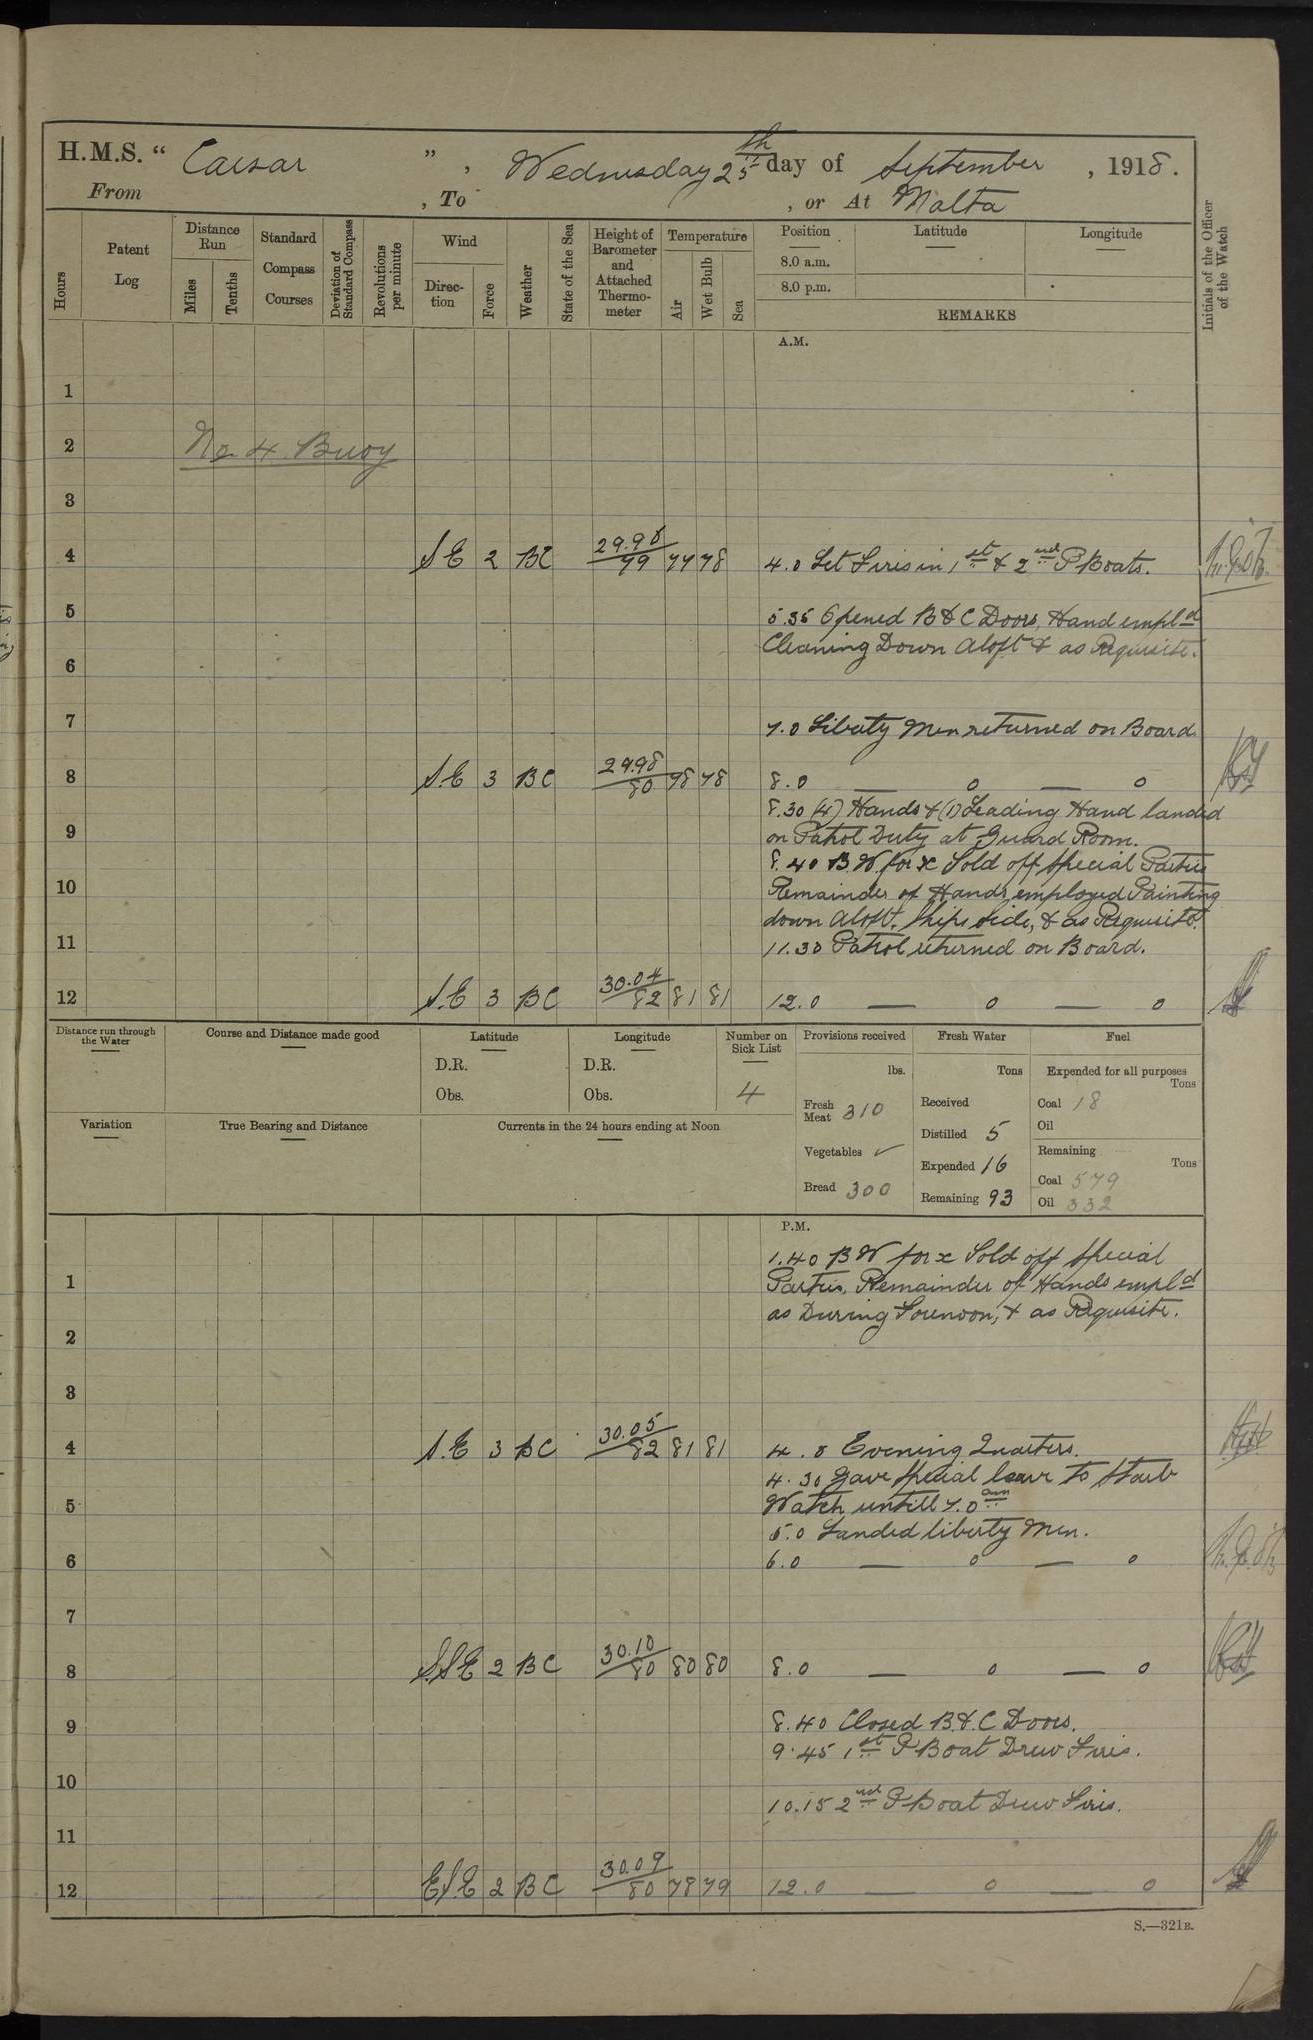 H.M.S. “ Caesar ”, Wednesday 25th day of September, 1918.
From , To , or At Malta
Hours
Patent Log
Distance Run
Miles
Tenths
Standard Compass Courses
Deviation of Standard Compass
Revolutions per minute
Wind
Direction
Force
Weather
State of the Sea
Height of Barometer and Attached Thermometer
Temperature
Air
Wet Bulb
Sea
Position
8.0 a.m.
8.0 p.m.
Latitude
Longitude
REMARKS
Initials of the Officer of the Watch
A.M.
1
2 No 4 Buoy
3
4 S E 2 BC 29.98/79 77 78 4.0 Let Firis in 1st & 2nd P Boats.
5 5.35 Opened B & C Doors, Hand empld
Cleaning Down Aloft & as Requisite.
6
7 7.0 Liberty Men returned on Board
8 S.E 3 BC 29.98/80 78 78 8.0 — o — o
8.30 (4) Hands & (1) Leading Hand landed
9 on Patrol Duty at Guard Room.
8.40 B.W. for x Told off Special Parties
10 Remainder of Hands employed Painting
down Aloft, Ships side, & as Requisite.
11 11.30 Patrol returned on Board.
12 S.E 3 BC 30.04/82 81 81 12.0 — o — o
Distance run through the Water
Course and Distance made good
Latitude
D.R.
Obs.
Longitude
D.R.
Obs.
Number on Sick List
4
Provisions received
lbs.
Fresh Meat 310
Vegetables ✓
Bread 300
Fresh Water
Tons
Received
Distilled 5
Expended 16
Remaining 93
Fuel
Expended for all purposes
Tons
Coal 18
Oil
Remaining
Tons
Coal 579
Oil 332
Variation
True Bearing and Distance
Currents in the 24 hours ending at Noon
P.M.
1.40 B W for x Told off Special
1 Parties, Remainder of Hands empld
as During Forenoon, & as Requisite.
2
3
4 S.E 3 BC 30.05/82 81 81 4.0 Evening Quarters.
4.30 Gave Special leave to Starb
5 Watch untill 7.0 am
5.0 Landed liberty Men.
6 6.0 — o — o
7
8 S.S.E 2 BC 30.10/80 80 80 8.0 — o — o
9 8.40 Closed B & C Doors.
9.45 1st P Boat Drew Firis.
10
10.15 2nd P Boat Drew Firis.
11
12 ESE 2 BC 30.09/80 78 79 12.0 — o — o
S.—321B.